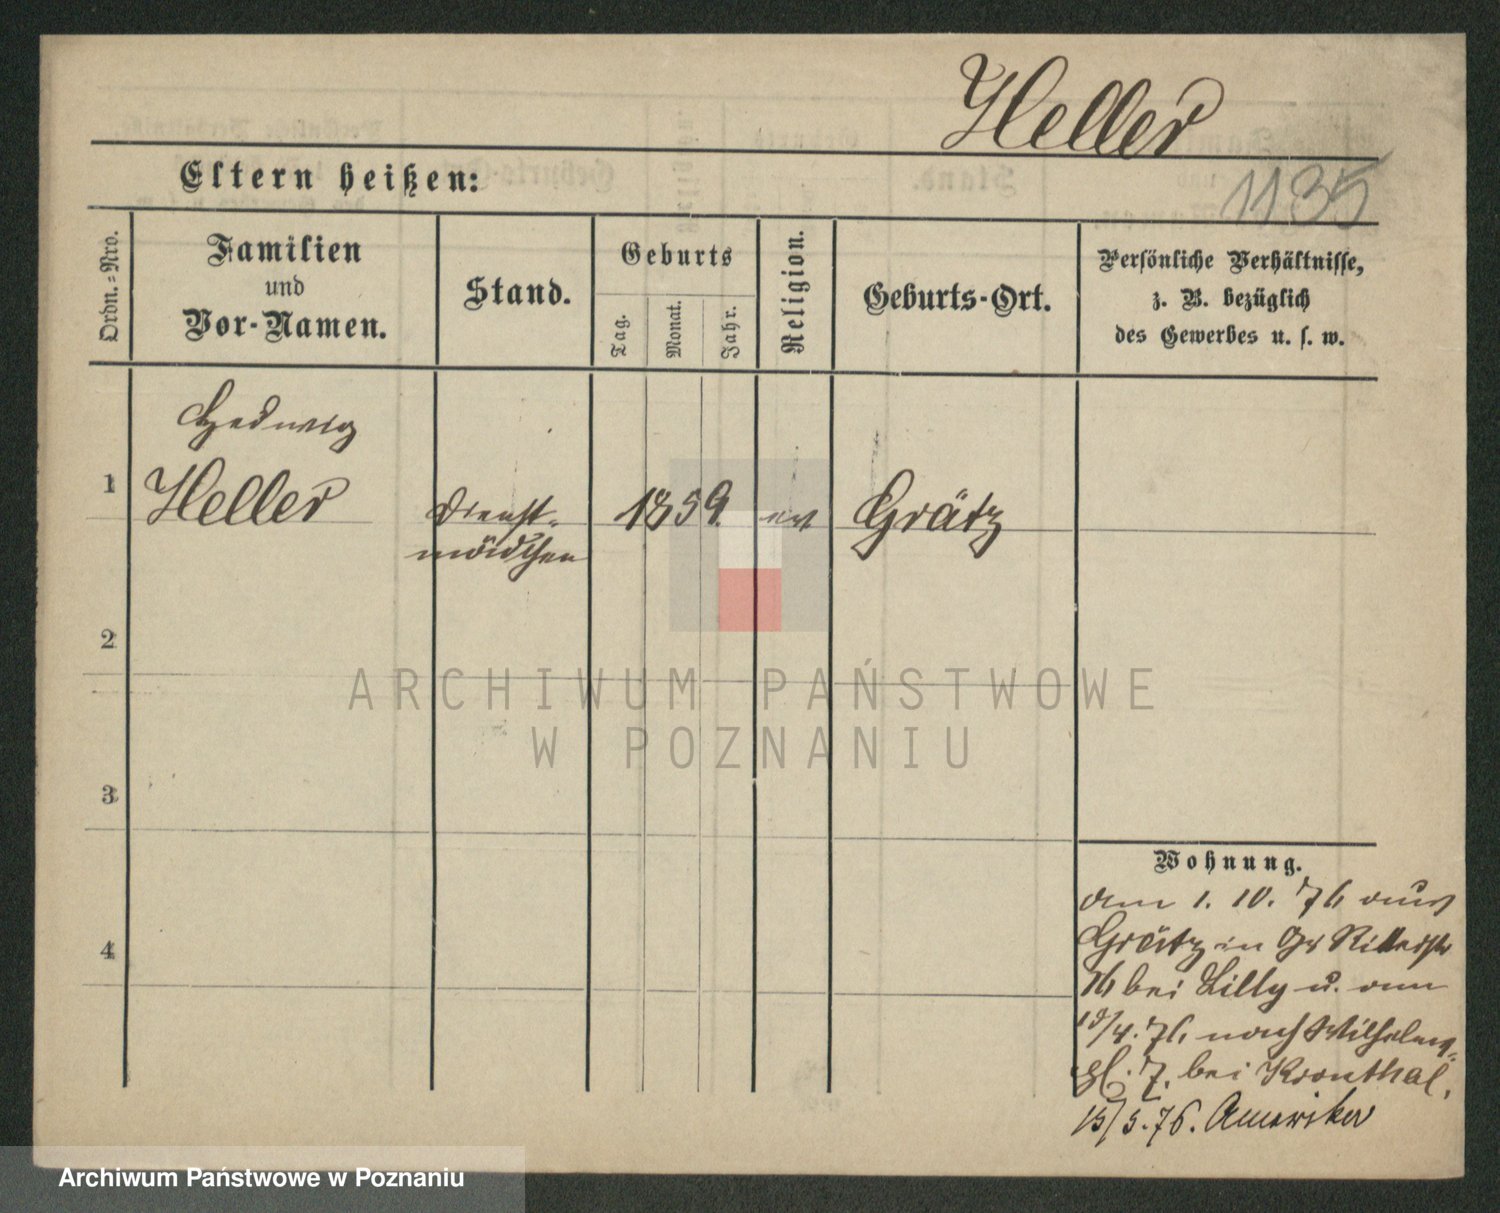 Heller
1135
Eltern heißen:
Ordn.=Nro.
Familien
und
Vor-Namen.
Stand.
Geburts
Tag.
Monat.
Jahr.
Religion.
Geburts-Ort.
Persönliche Verhältnisse,
z. B. bezüglich
des Gewerbes u. s. w.
Hedwig
1 Heller Dienst- 1859. ev Grätz
mädchen
2
3
4
ARCHIWUM PAŃSTWOWE
W POZNANIU
Wohnung.
am 1. 10. 76 aus
Grätz in Gr Ritterstr
16 bei Lilly u. am
/4. 76 nach Wilhelms-
pl. 7. bei Kronthal.
15/5.76. Amerika
Archiwum Państwowe w Poznaniu